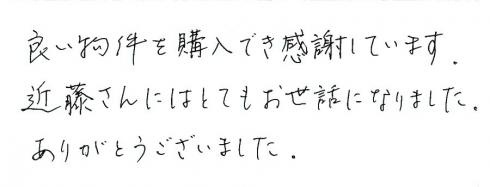 良い物件を購入でき感謝しています.
近藤さんにはとてもお世話になりました.
ありがとうございました.